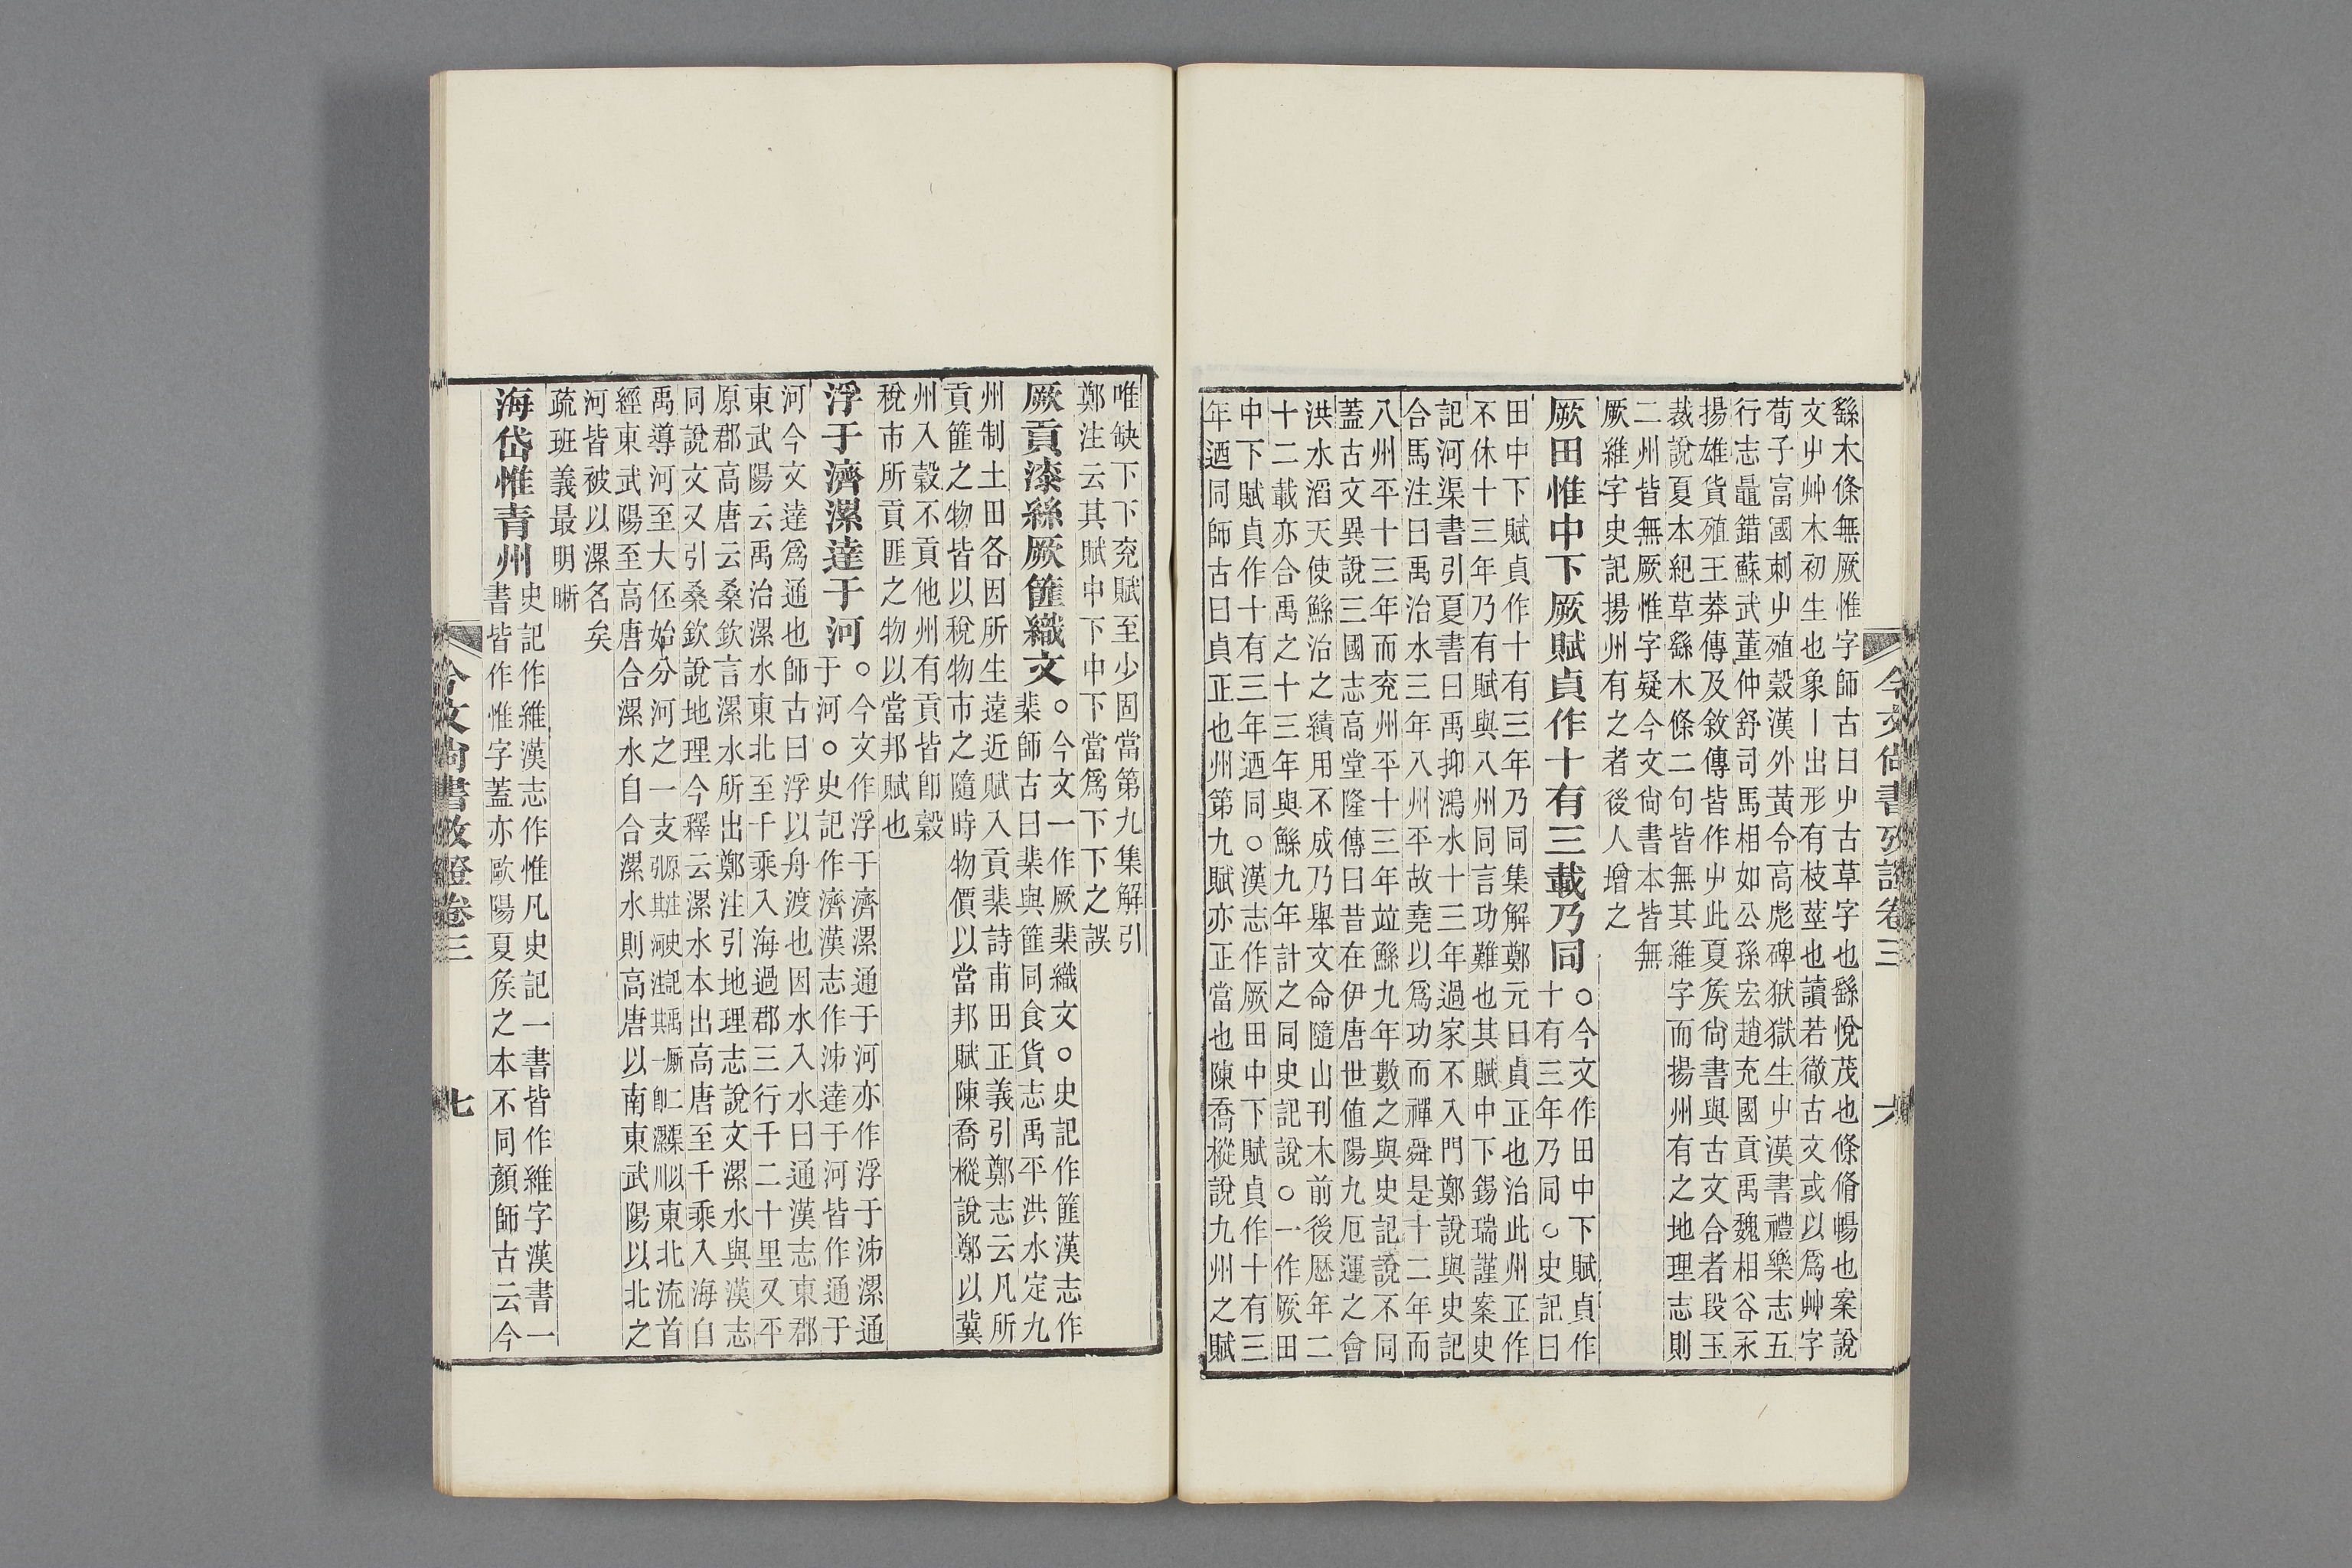 今文尚書攷證卷三
六
繇木條無厥惟字師古曰屮古草字也繇悅茂也條脩暢也案說
文屮艸木初生也象丨出形有枝莖也讀若徹古文或以爲艸字
荀子富國刺屮殖穀漢外黃令高彪碑獄獄生屮漢書禮樂志五
行志鼂錯蘇武董仲舒司馬相如公孫宏趙充國貢禹魏相谷永
揚雄貨殖王莽傳及敘傳皆作屮此夏矦尚書與古文合者段玉
裁說夏本紀草繇木條二句皆無其維字而揚州有之地理志則
二州皆無厥惟字疑今文尚書本皆無
厥維字史記揚州有之者後人增之
厥田惟中下厥賦貞作十有三載乃同
○今文作田中下賦貞作
十有三年乃同○史記曰
田中下賦貞作十有三年乃同集解鄭元曰貞正也治此州正作
不休十三年乃有賦與八州同言功難也其賦中下錫瑞謹案史
記河渠書引夏書曰禹抑鴻水十三年過家不入門鄭說與史記
合馬注曰禹治水三年八州平故堯以爲功而禪舜是十二年而
八州平十三年而兖州平十三年竝鯀九年數之與史記說不同
蓋古文異說三國志高堂隆傳曰昔在伊唐世值陽九厄運之會
洪水滔天使鯀治之績用不成乃舉文命隨山刊木前後歷年二
十二載亦合禹之十三年與鯀九年計之同史記說○一作厥田
中下賦貞作十有三年迺同○漢志作厥田中下賦貞作十有三
年迺同師古曰貞正也州第九賦亦正當也陳喬樅說九州之賦
唯缺下下兖賦至少固當第九集解引
鄭注云其賦中下中下當爲下下之誤
厥貢漆絲厥篚織文
○今文一作厥棐織文○史記作篚漢志作
棐師古曰棐與篚同食貨志禹平洪水定九
州制土田各因所生遠近賦入貢棐詩甫田正義引鄭志云凡所
貢篚之物皆以稅物市之隨時物價以當邦賦陳喬樅說鄭以冀
州入穀不貢他州有貢皆卽穀
稅市所貢匪之物以當邦賦也
浮于濟漯達于河
○今文作浮于濟漯通于河亦作浮于泲漯通
于河○史記作濟漢志作泲達于河皆作通于
河今文達爲通也師古曰浮以舟渡也因水入水曰通漢志東郡
東武陽云禹治漯水東北至千乘入海過郡三行千二十里又平
原郡高唐云桑欽言漯水所出鄭注引地理志說文漯水與漢志
同說文又引桑欽說地理今釋云漯水本出高唐至千乘入海自
禹導河至大伾始分河之一支東北流首
經東武陽至高唐合漯水自合漯水則高唐以南東武陽以北之
河皆被以漯名矣
疏班義最明晰
海岱惟青州
史記作維漢志作惟凡史記一書皆作維字漢書一
書皆作惟字蓋亦歐陽夏矦之本不同顏師古云今
今文尚書攷證卷三
七